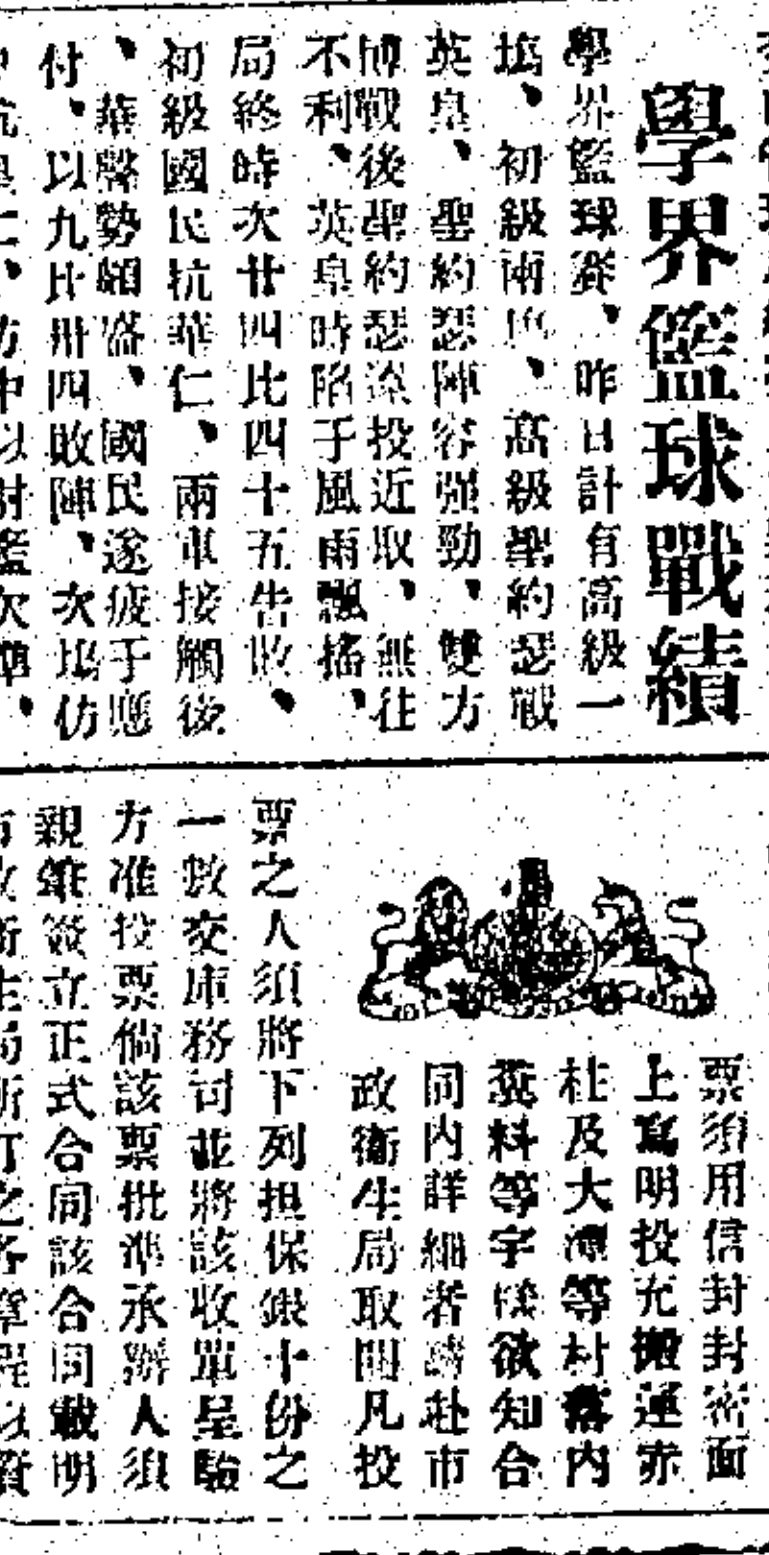 學界籃球戰績
學界籃球賽、昨日計有高級一
塲、初級兩塲、高級聖約瑟戰
英皇、聖約瑟陣容強勁、雙方
博戰後聖約瑟深投近取、無往
不利、英皇時陷于風雨飄搖、
局終時次廿四比四十五告敗、
初級國民抗華仁、兩軍接觸後
、華聲勢頗盛、國民遂疲于應
付、以九比卅四敗陣、次塲仿
票須用信封封密面
上寫明投充搬運赤
柱及大潭等村落內
糞料等字樣欲知合
同內詳細者請赴市
政衛生局取閱凡投
票之人須將下列担保銀十份之
一數交庫務司並將該收單呈驗
方准投票倘該票批準承辦人須
親筆簽立正式合同該合同載明